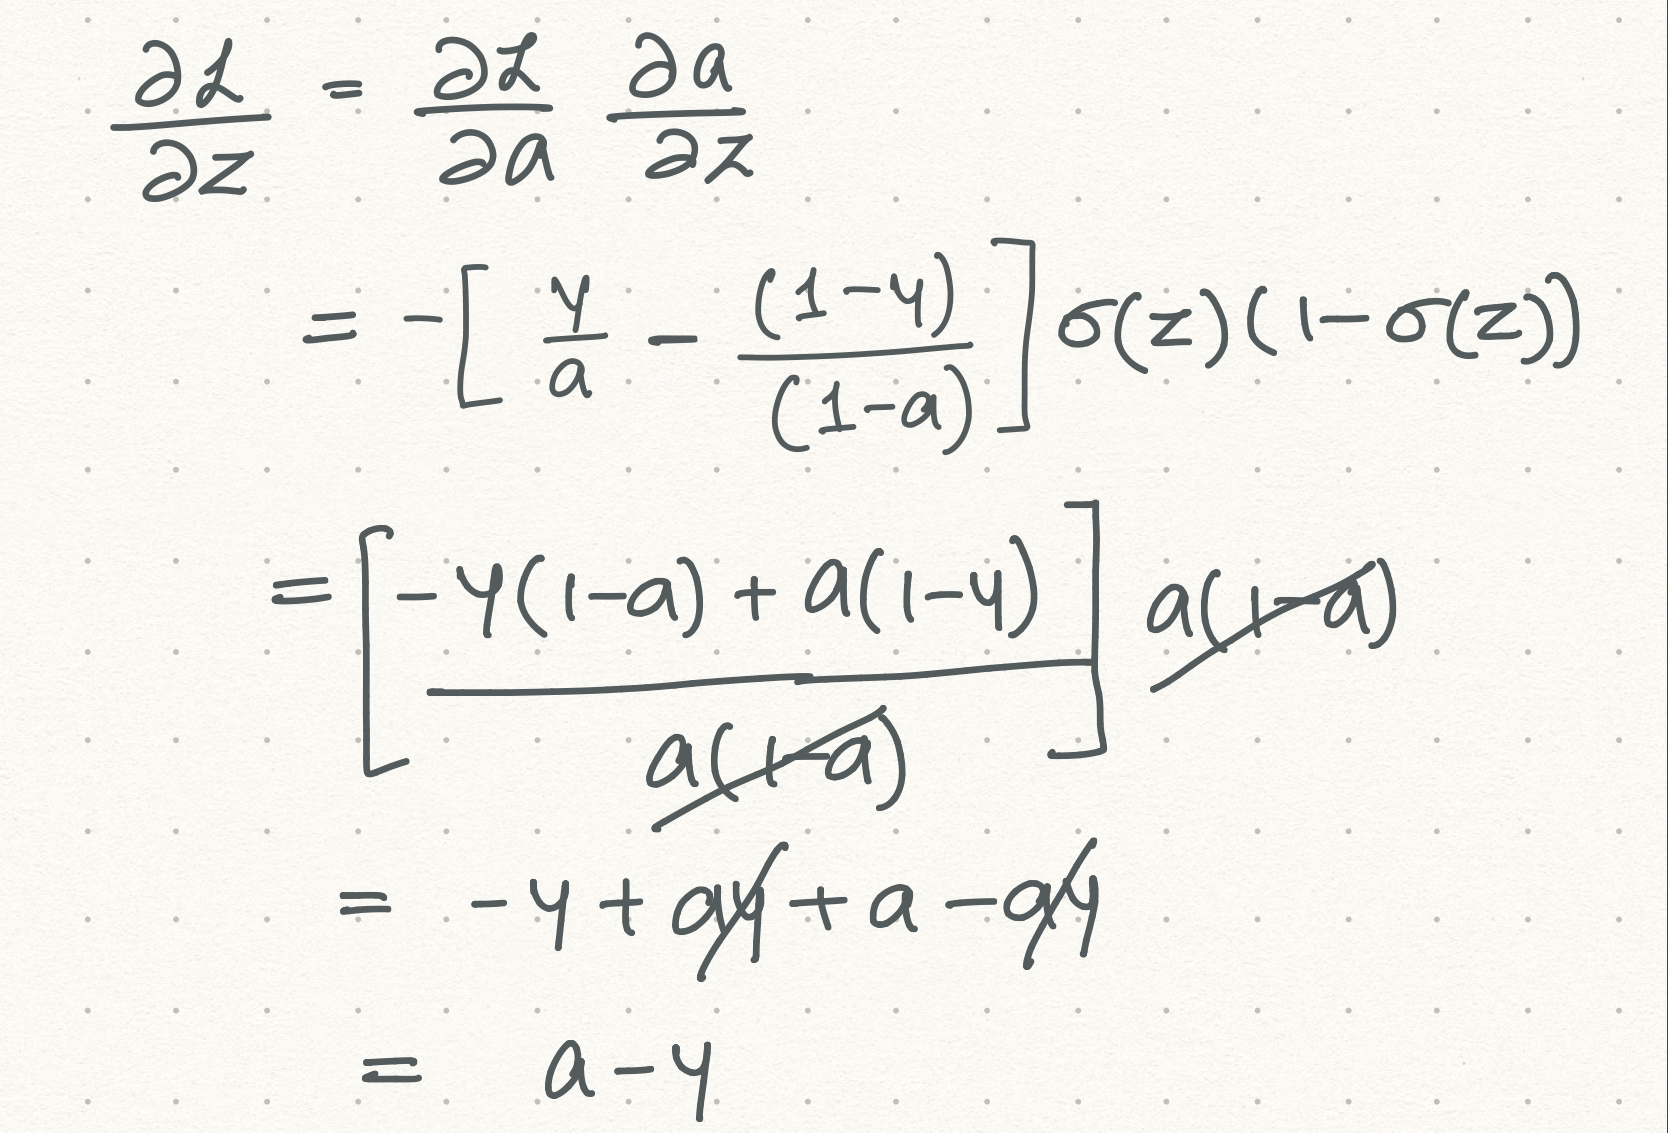 ∂ℒ/∂z = ∂ℒ/∂a ∂a/∂z
= -[y/a - (1-y)/(1-a)] σ(z)(1-σ(z))
= [(-y(1-a) + a(1-y))/(a(1-a))] a(1-a)
= -y + ay + a - ay
= a - y